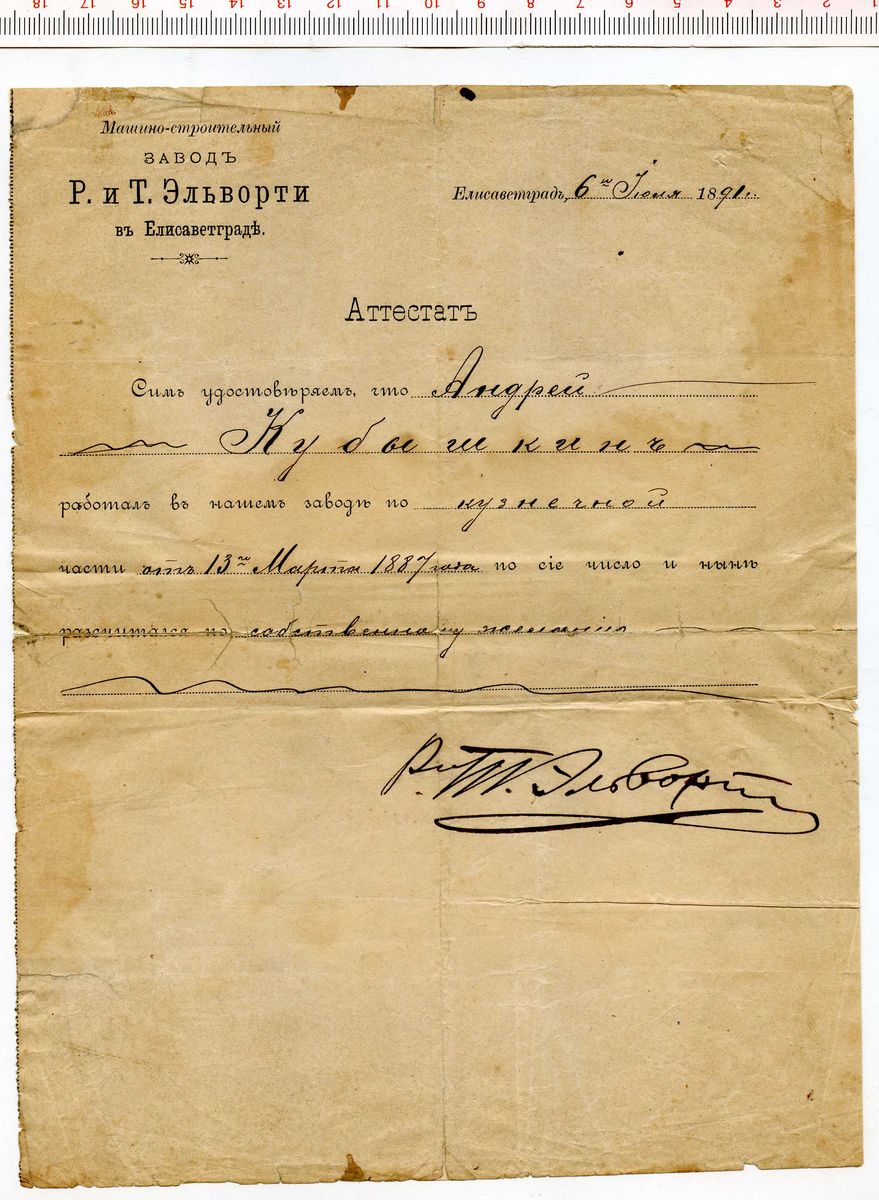 18 17 16 15 14 13 12 11 10 9 8 7 6 5 4 3 2 1
Машино-строительный
ЗАВОДЪ
Р. и Т. Эльворти
въ Елисаветградѣ.
Елисаветградъ, 6го Іюля 1891 г.
Аттестатъ
Симъ удостовѣряемъ, что Андрей
Кубышкинъ
работалъ въ нашемъ заводѣ по кузнечной
части отъ 13го Марта 1887 года по сіе число и нынѣ
разсчитался по собственному желанію
Р и Т. Эльворти